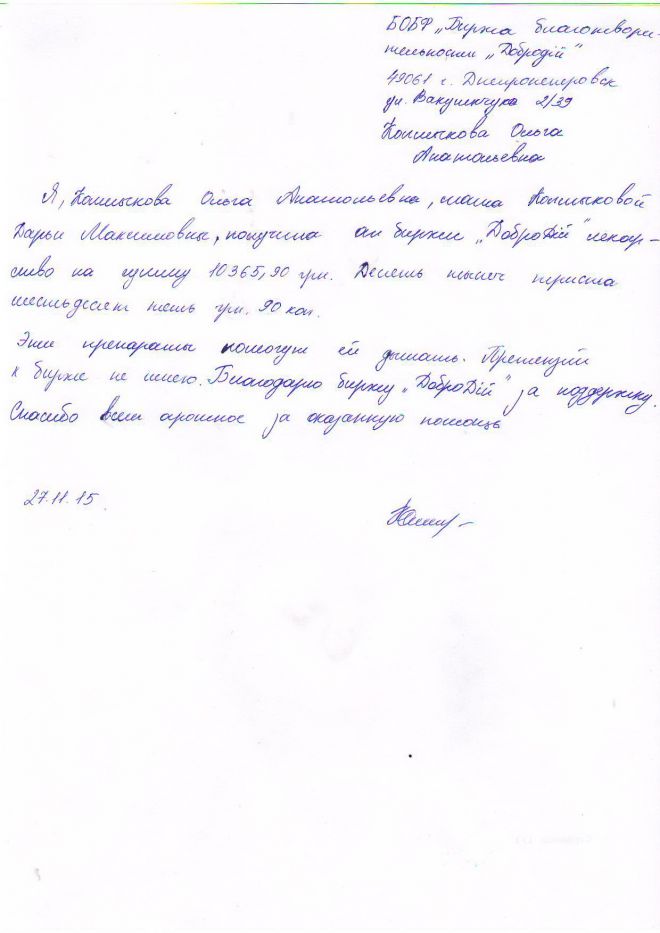 БОБФ „Биржа благотвори-
тельности „Добродій"
49061 г. Днепропетровск
ул. Вакуленчука 2/39
Ольга
Анатольевна
Я, Ольга Анатольевна, мама
Дарьи Максимовны, получила от биржи „ДоброДій" лекар-
ство на сумму 10365,90 грн. Десять тысяч триста
шестьдесят пять грн. 90 коп.
Эти препараты помогут ей дышать. Претензий
к бирже не имею. Благодарю биржу „ДоброДій" за поддержку.
Спасибо всем огромное за оказанную помощь
27.11.15